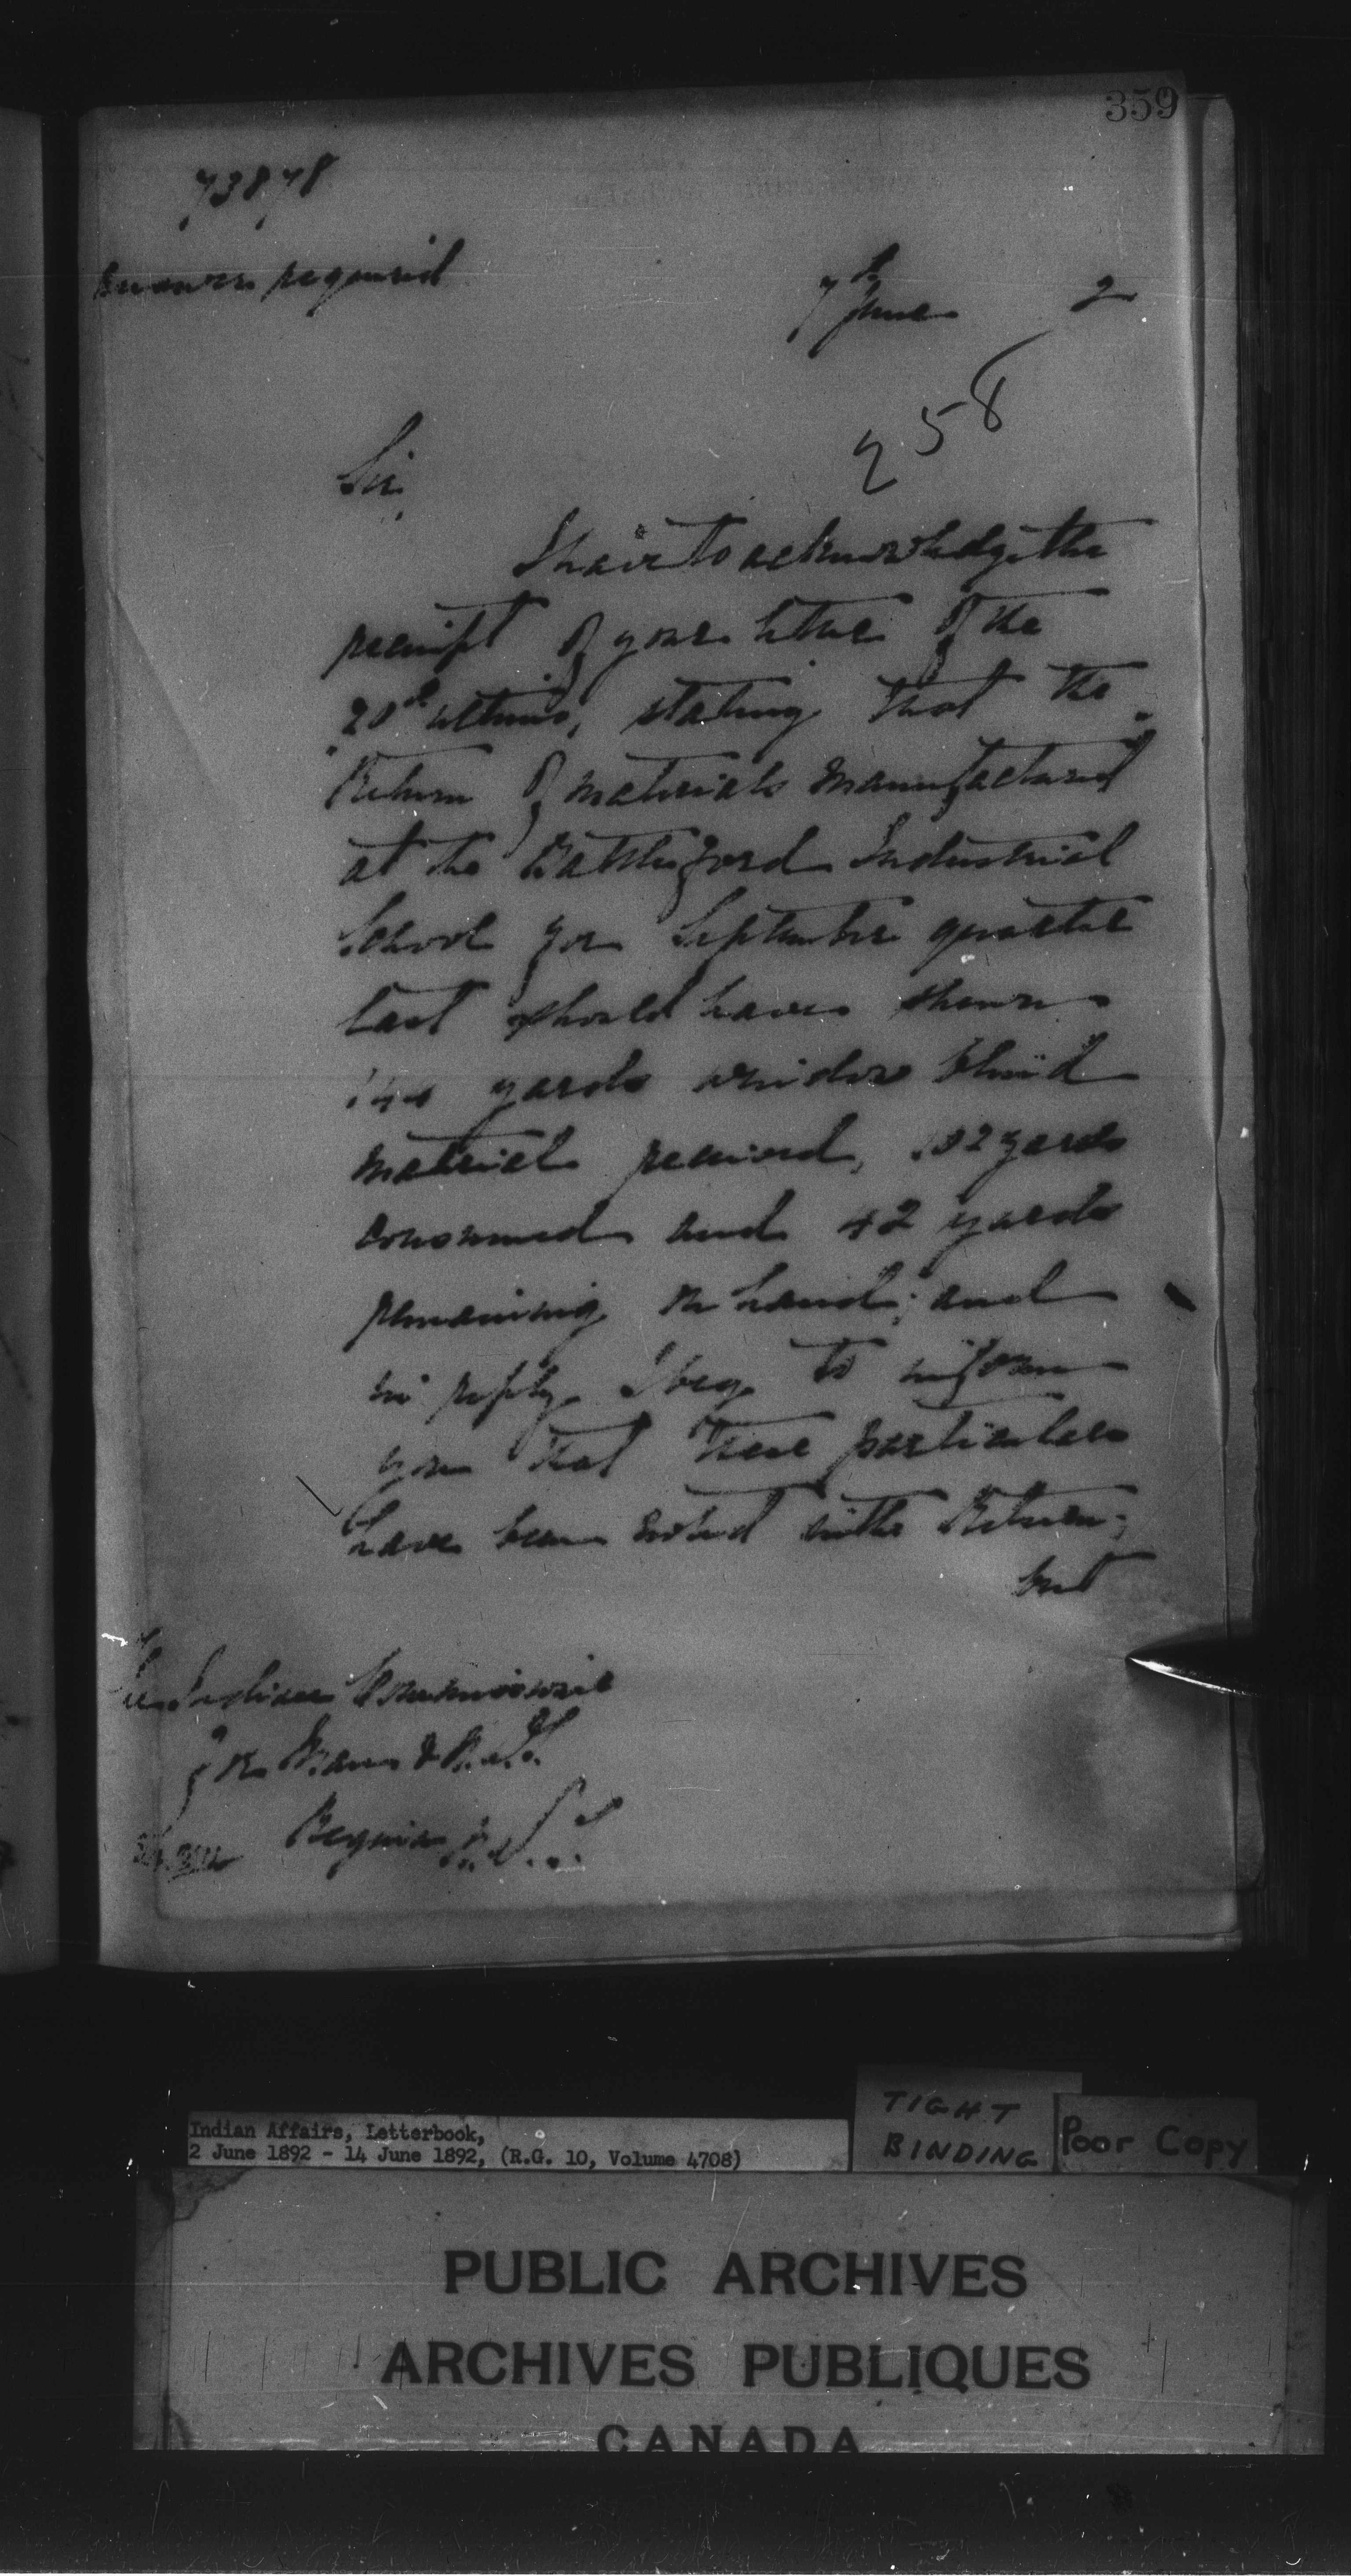 359
73878
Answer required
7th June 2
258
Sir,
I have to acknowledge the
receipt of your letter of the
20th ultimo, stating that the
Return of materials manufactured
at the Battleford Industrial
School for September quarter
last should have shown
144 yards window blind
material received, 102 yards
consumed and 42 yards
remaining on hand; and
in reply I beg to inform
you that these particulars
have been noted in the Return;
but
The Indian Commissioner
for Man. & N.W.T.
Regina
Indian Affairs, Letterbook,
2 June 1892 - 14 June 1892, (R.G. 10, Volume 4708)
TIGHT
BINDING
Poor Copy
PUBLIC ARCHIVES
ARCHIVES PUBLIQUES
CANADA